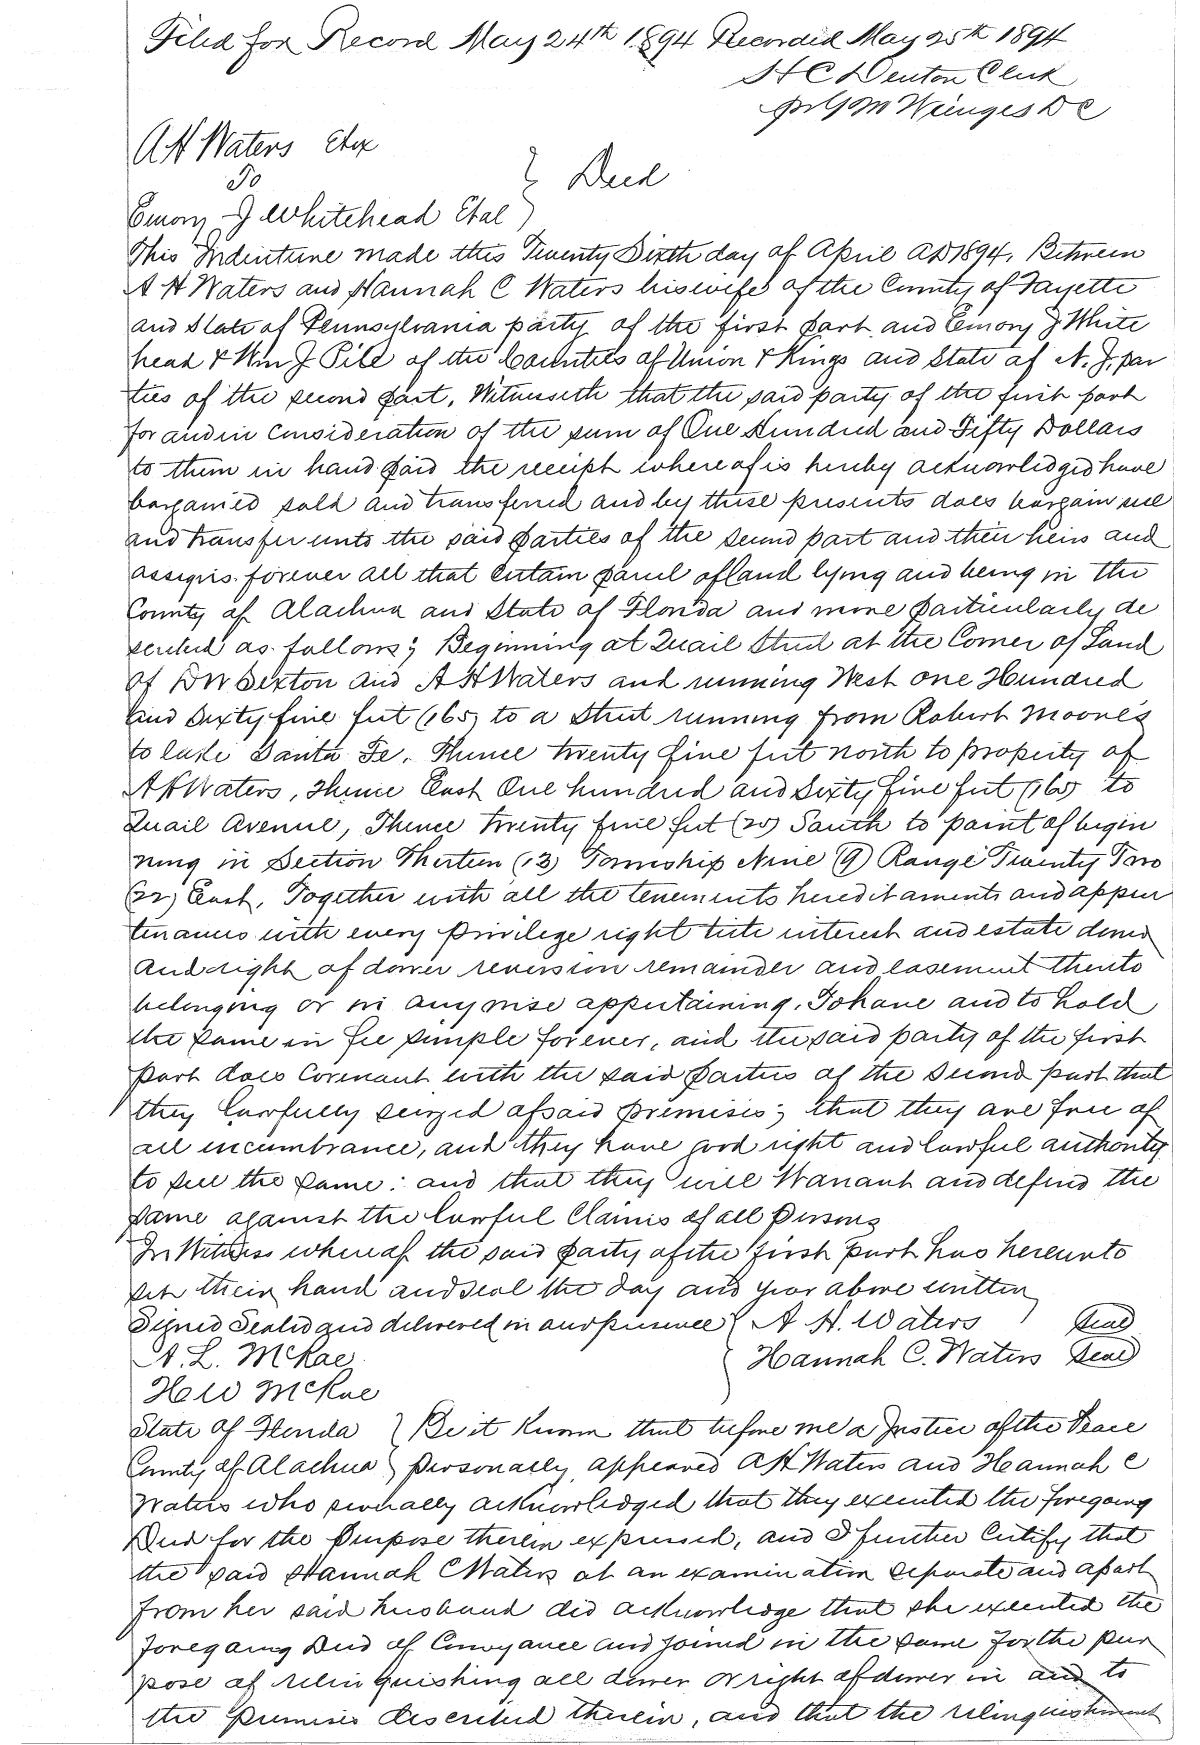 Filed for Record May 24th 1894 Recorded May 25th 1894
H C Denton Clerk
pr G M Wienges D C
A H Waters Etux
To } Deed
Emory J Whitehead Etal
This Indenture made this Twenty Sixth day of April AD 1894, Between
A H Waters and Hannah C Waters his wife of the County of Fayette
and State of Pennsylvania party of the first part and Emory J White
head & Wm J Pile of the Counties of Union & Kings and State of N. J. par
ties of the second part, Witnesseth that the said party of the first part
for and in Consideration of the sum of One Hundred and Fifty Dollars
to them in hand paid the receipt whereof is hereby acknowledged have
bargained sold and transferred and by these presents does bargain sell
and transfer unto the said parties of the second part and their heirs and
assigns forever all that certain parcel of land lying and being in the
County of Alachua and State of Florida and more particularly de
scribed as follows; Beginning at Quail Street at the Corner of Land
of D W Sexton and A H Waters and running West one Hundred
and Sixty five feet (165) to a Street running from Robert Moore's
to lake Santa Fe. Thence twenty five feet north to property of
A H Waters, Thence East One hundred and Sixty five feet (165) to
Quail Avenue, Thence twenty five feet (25) South to point of begin
ning in Section Thirteen (13) Township Nine (9) Range Twenty Two
(22) East, Together with all the tenements hereditaments and appur
tenances with every privilege right title interest and estate dower
and right of dower reversion remainder and easement thereto
belonging or in anywise appertaining. To have and to hold
the same in fee simple forever, and the said party of the first
part does Covenant with the said parties of the second part that
they lawfully seized of said premises; that they are free of
all incumbrance, and they have good right and lawful authority
to sell the same: and that they will Warrant and defend the
same against the lawful Claims of all persons
In Witness whereof the said party of the first part has hereunto
set their hand and seal the day and year above written
Signed Sealed and delivered in our presence { A H. Waters Seal
A. L. McRae { Hannah C. Waters Seal
H W McRae
State of Florida } Be it Known that before me a Justice of the Peace
County of Alachua } personally appeared A H Waters and Hannah C
Waters who severally acknowledged that they executed the foregoing
Deed for the Purpose therein expressed, and I further Certify that
the said Hannah C Waters at an examination separate and apart
from her said husband did acknowledge that she executed the
foregoing Deed of Conveyance and joined in the same for the pur
pose of relinquishing all dower or right of dower in and to
the premises described therein, and that the relinquishment